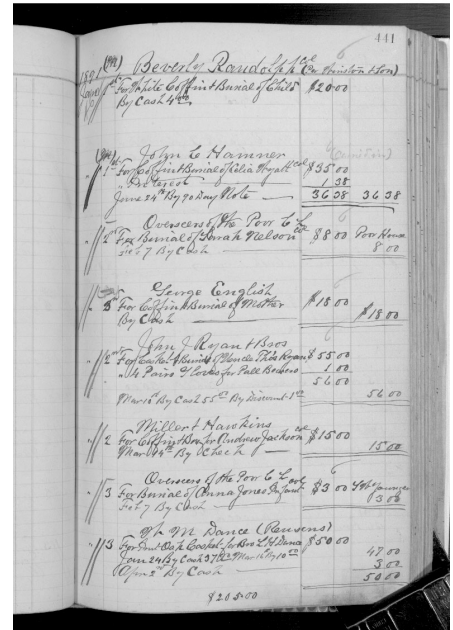 441
(M) Beverly Randolph col (Per Winston & Son)
1891 Jany 1st For White Coffin & Burial of Child $20 00
By Cash 4th
John C Hamner
1st For Coffin & Burial of Celia Wyatt col $35 00
" Interest 1 38
June 24th By 90 Day Note 36 38 36 38
Overseers of the Poor C L
" 2 For Burial of Sarah Nelson col $8 00 Poor House
By Cash 8 00
George English
For Coffin & Burial of Mother $18 00
By Cash $18 00
John J Ryan & Bros
" 2 For Casket & Burial of Thos Ryan $55 00
" 4 Pairs Gloves for Pall Bearers 1 00
56 00
Mar 12 By Cash 55 00 By Discount 1 00 56 00
Miller & Hawkins
" 2 For Coffin & Box for Andrew Jackson col $15 00
Mar 14th By Check 15 00
Overseers of the Poor C L col
" 3 For Burial of Anna Jones Infant $3 00
Feb 7 By Cash 3 00
M Dance (Reusens)
" 3 For Imt Oak Casket for Bro L H Dance $50 00
Jan 24 By Cash 37 00 Mar 12 By 10 00 47 00
Apr 2nd By Cash 3 00
50 00
$205.00